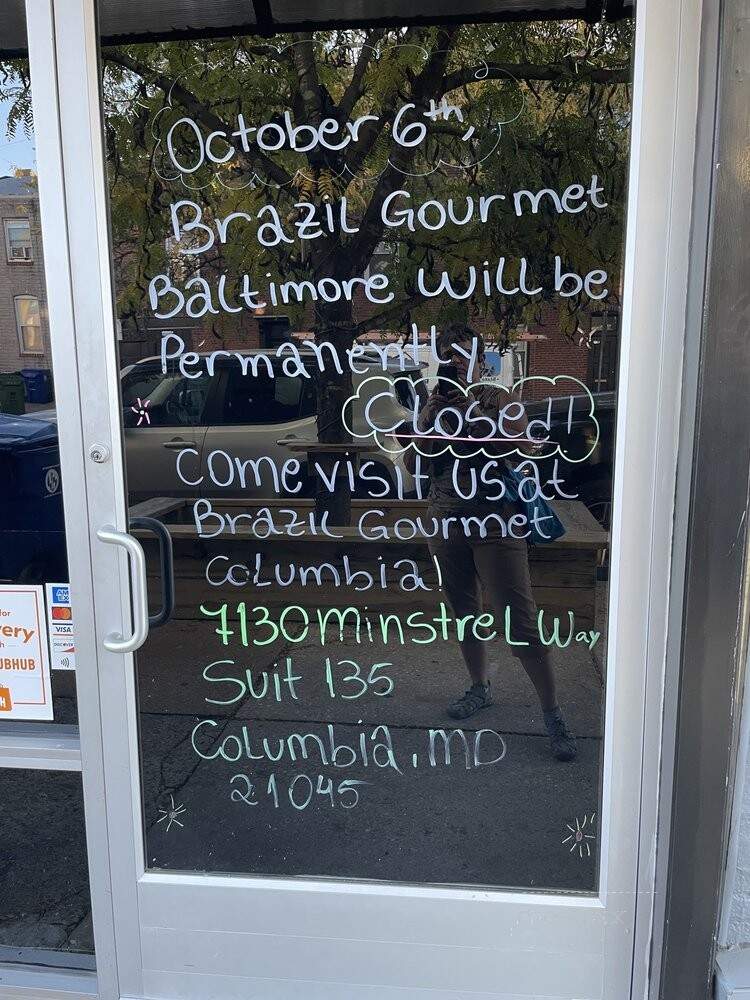 October 6th,
Brazil Gourmet
Baltimore will be
Permanently
Closed!!
Come visit us at
Brazil Gourmet
Columbia!
7130 Minstrel Way
Suit 135
Columbia, MD
21045
VISA
DISCOVER